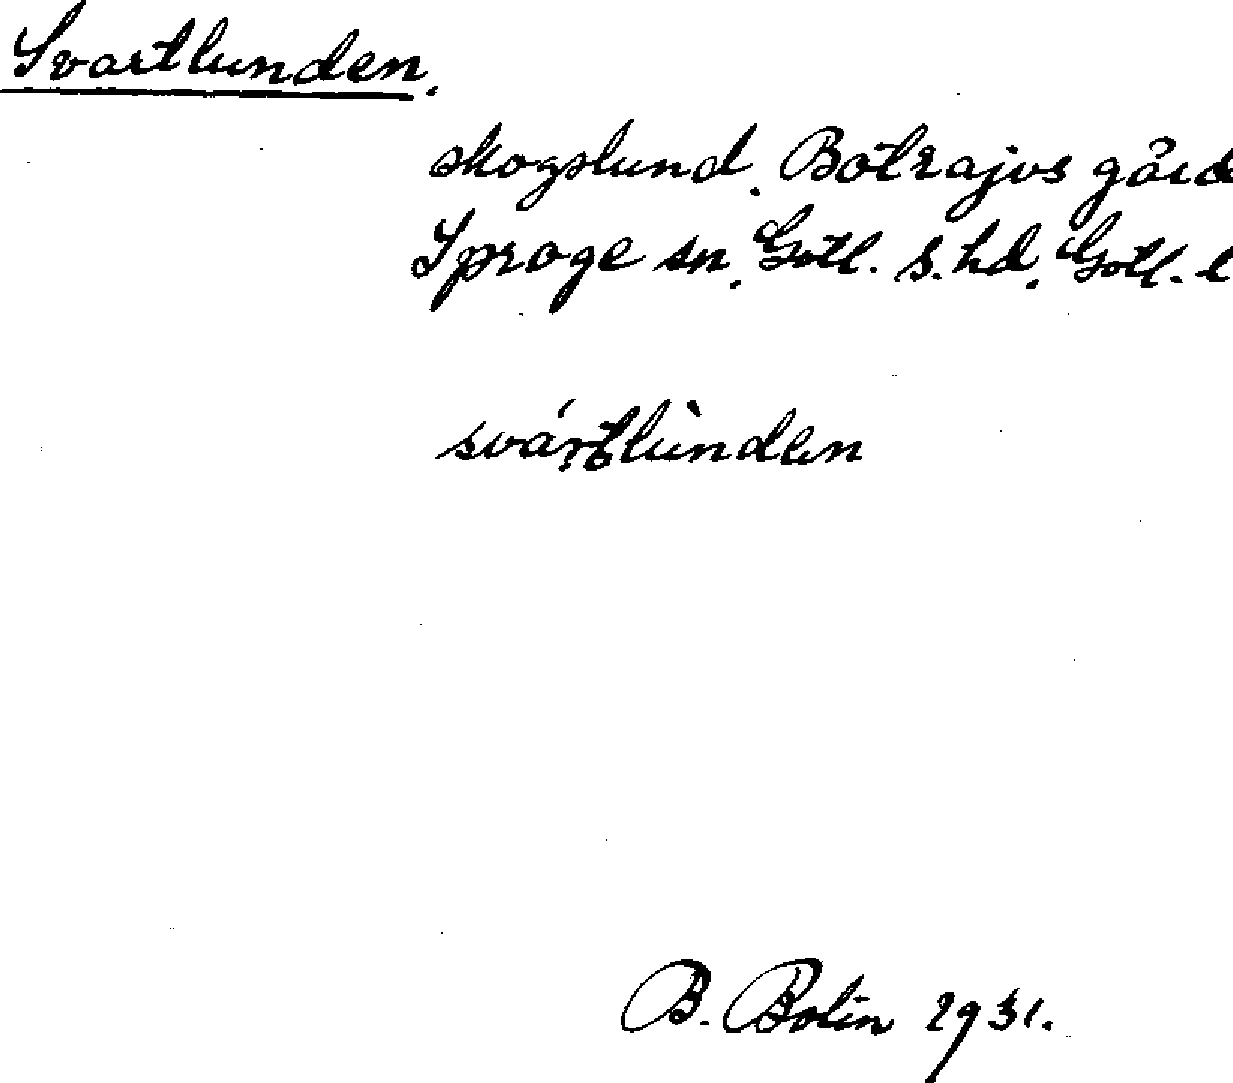 Svartlunden.
skogslund. Botrajvs gård
Sproge sn. Gotl. S. hd. Gotl. l
svártlùnden
B. Bolin 1931.